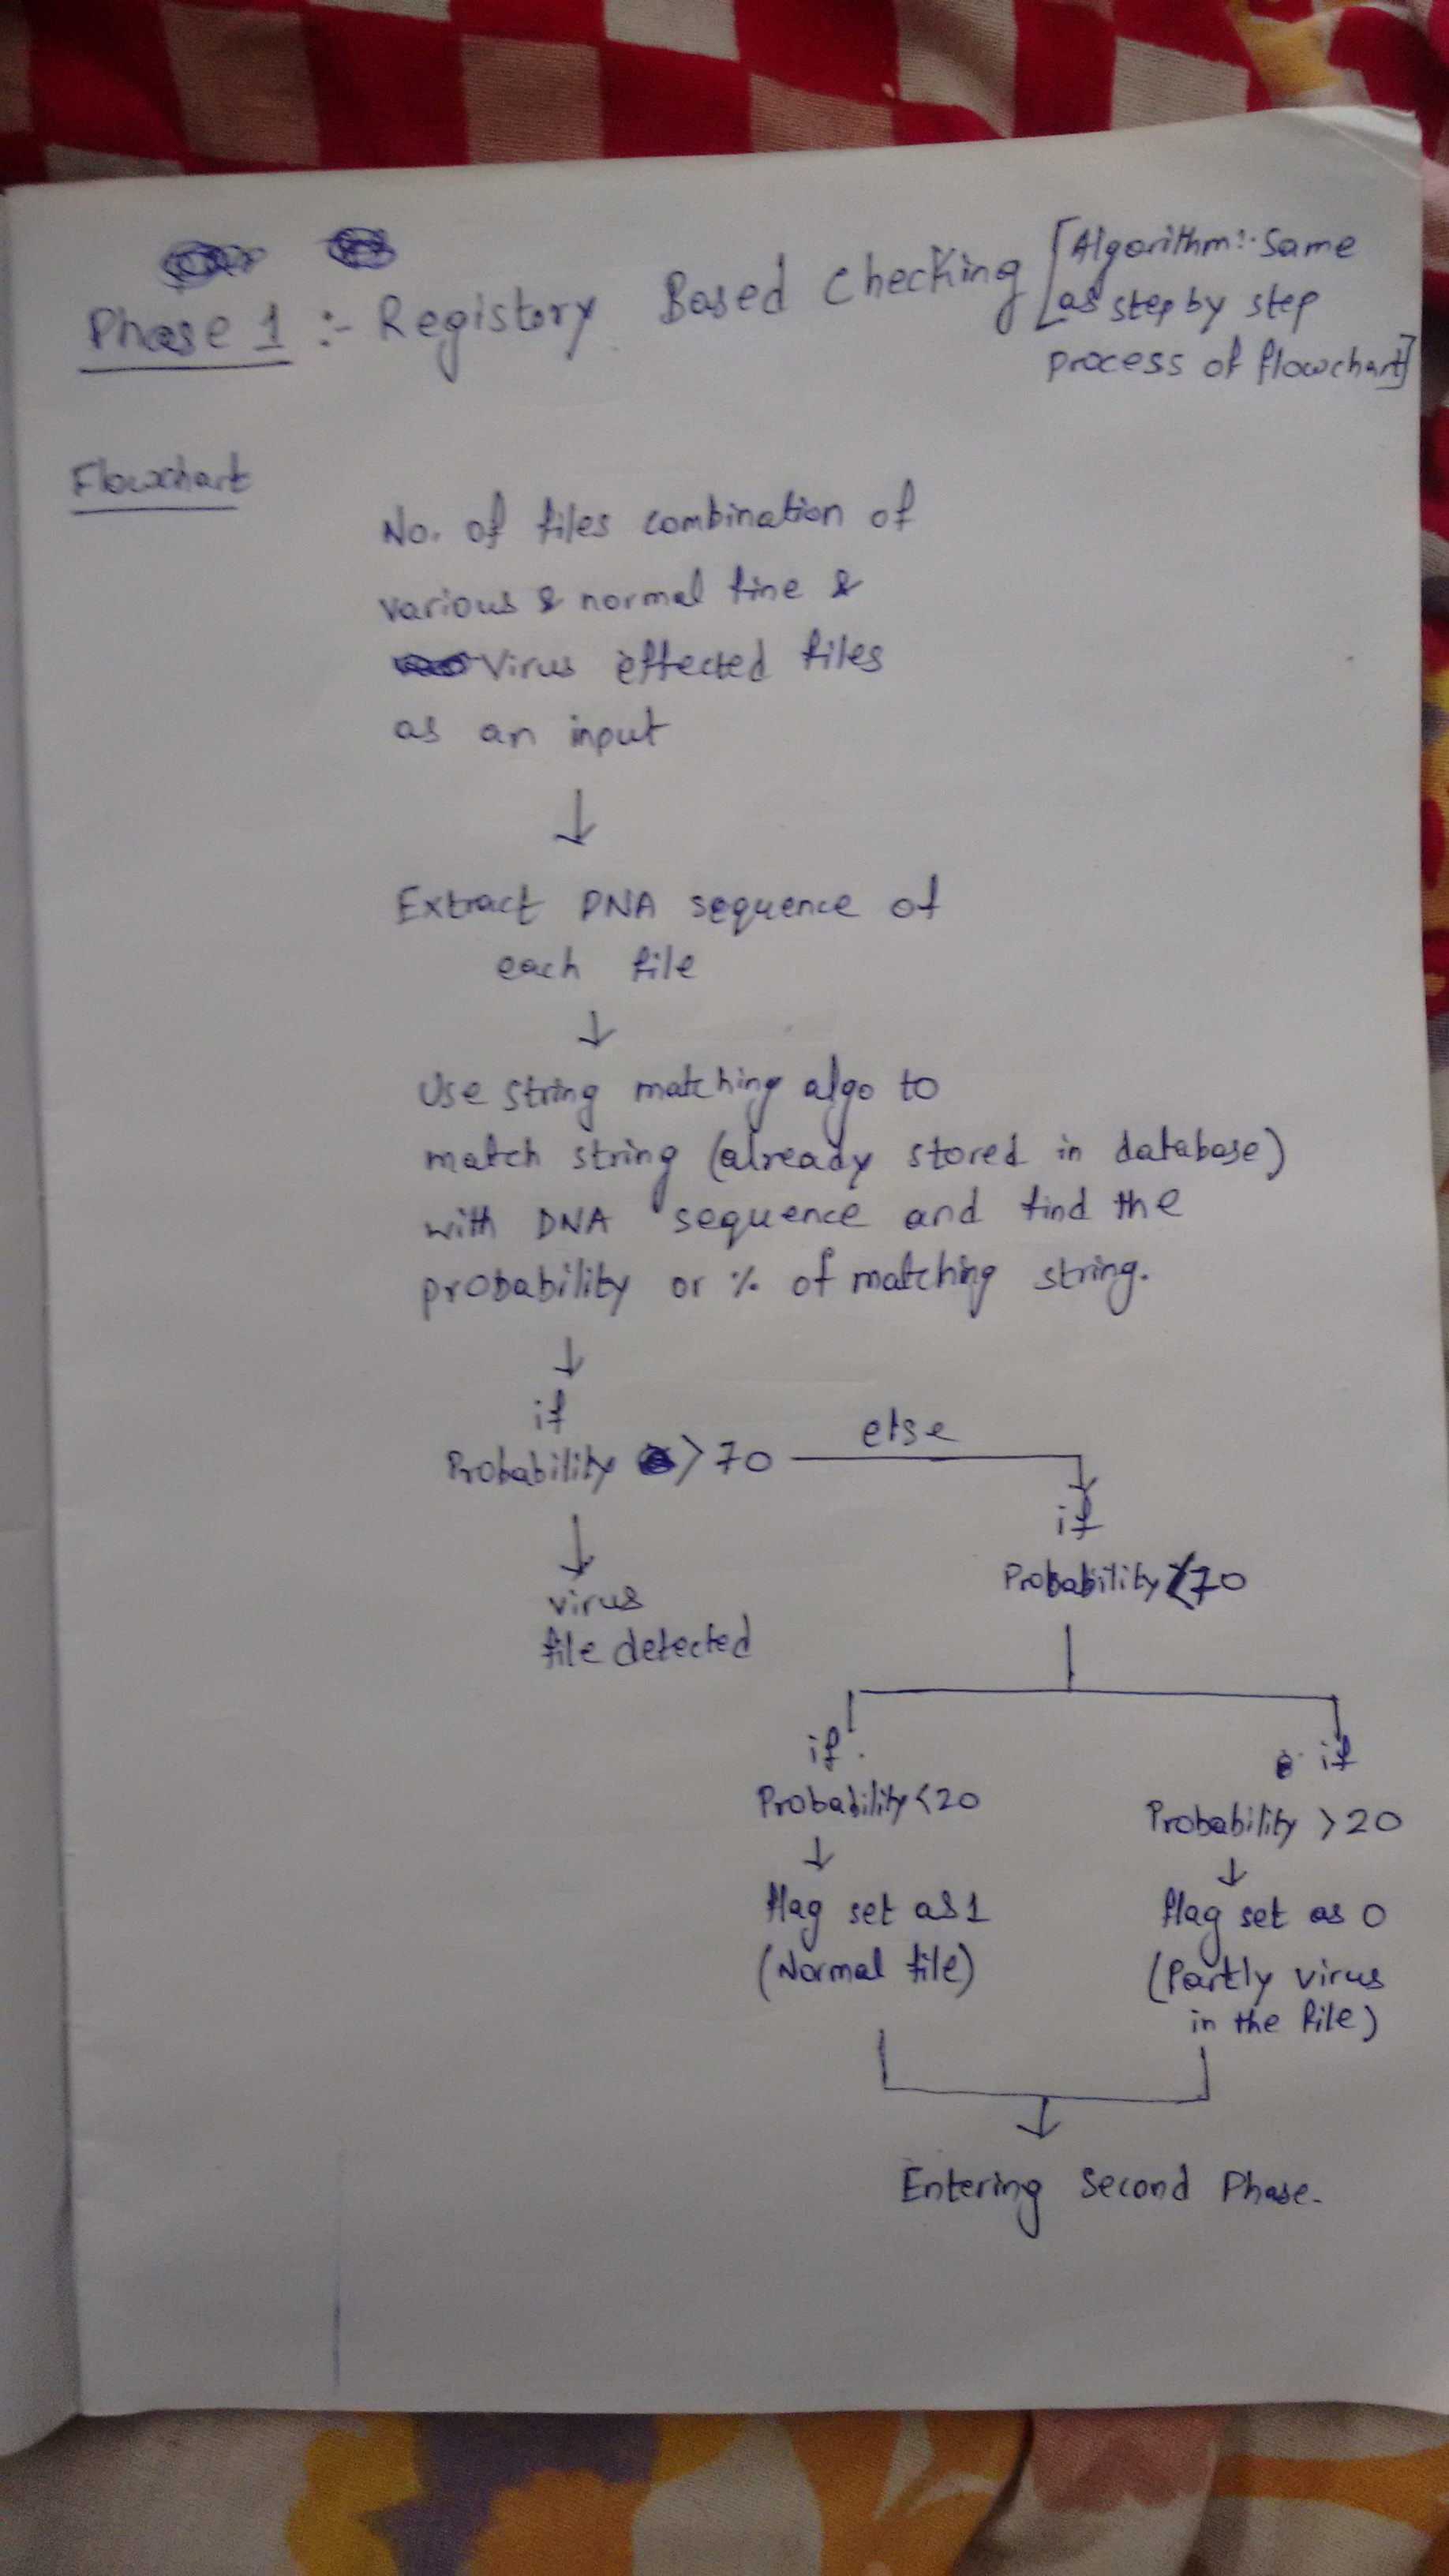 Phase 1 :- Registory Based Checking
[Algorithm:- Same
as step by step
process of flowchart]
Flowchart
No. of files combination of
various & normal fine &
Virus effected files
as an input
↓
Extract DNA sequence of
each file
↓
Use string matching algo to
match string (already stored in database)
with DNA sequence and find the
probability or % of matching string.
↓
if
Probability > 70
else
↓
virus
file detected
if
Probability <70
if
Probability <20
↓
flag set as 1
(Normal file)
if
Probability > 20
↓
flag set as 0
(Partly virus
in the file)
↓
Entering Second Phase.